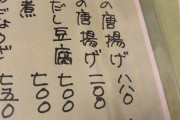 の唐揚げ 八八〇
の唐揚げ 一二〇〇
だし豆腐 七〇〇
煮 七〇〇
七五〇